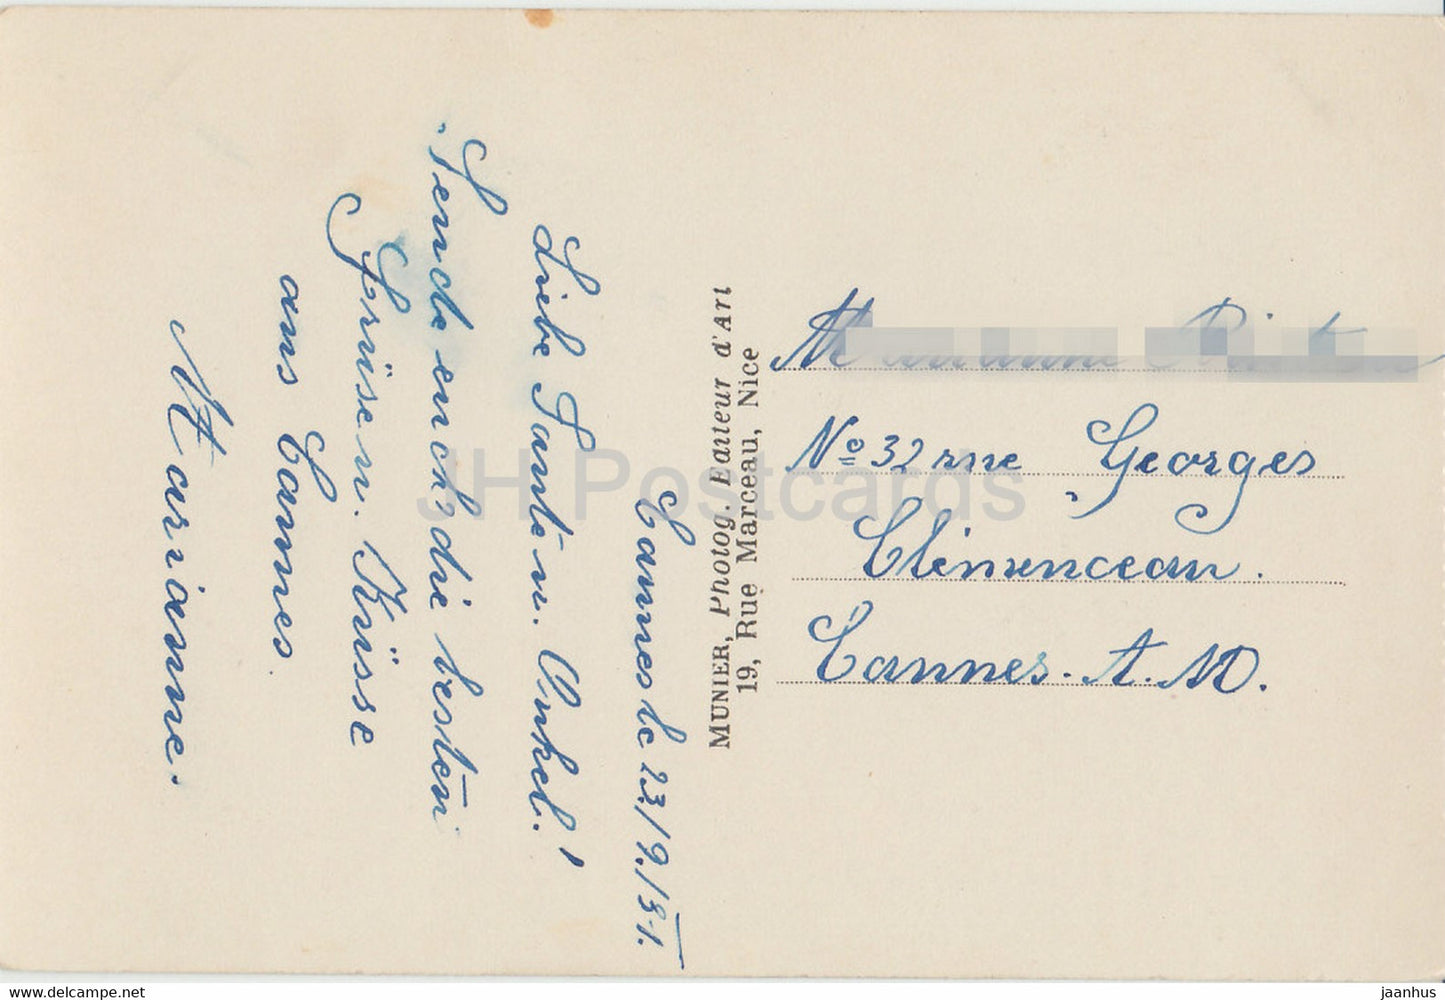 Cannes le 23./9./31.
Liebe Tante u. Onkel!
Sende euch die besten
Grüsse u. Küsse
aus Cannes.
Marianne.
MUNIER, Photog. Editeur d'Art
19, Rue Marceau, Nice
No 32 rue Georges
Clémenceau.
Cannes. A.M.
JH Postcards
www.delcampe.net
jaanhus